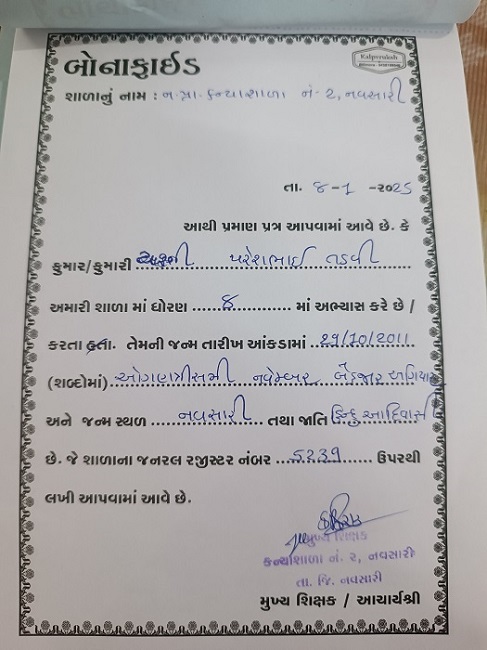 બોનાફાઈડ
Kalpvruksh
શાળાનું નામ : ન.પ્રા. કન્યાશાળા નં- ૨, નવસારી
તા. ૪-1 -૨૦25
આથી પ્રમાણ પત્ર આપવામાં આવે છે. કે
કુમાર/કુમારી પરેશભાઈ તડવી
અમારી શાળા માં ધોરણ ૪ માં અભ્યાસ કરે છે /
કરતા હતા. તેમની જન્મ તારીખ આંકડામાં 29/10/2011
(શબ્દોમાં) ઓગણત્રીસમી નવેમ્બર બેહજાર અગિયાર
અને જન્મ સ્થળ નવસારી તથા જાતિ હિન્દુ આદિવાસી
છે. જે શાળાના જનરલ રજીસ્ટર નંબર 5239 ઉપરથી
લખી આપવામાં આવે છે.
મુખ્ય શિક્ષક
કન્યાશાળા નં. ૨, નવસારી
તા. જિ. નવસારી
મુખ્ય શિક્ષક / આચાર્યશ્રી